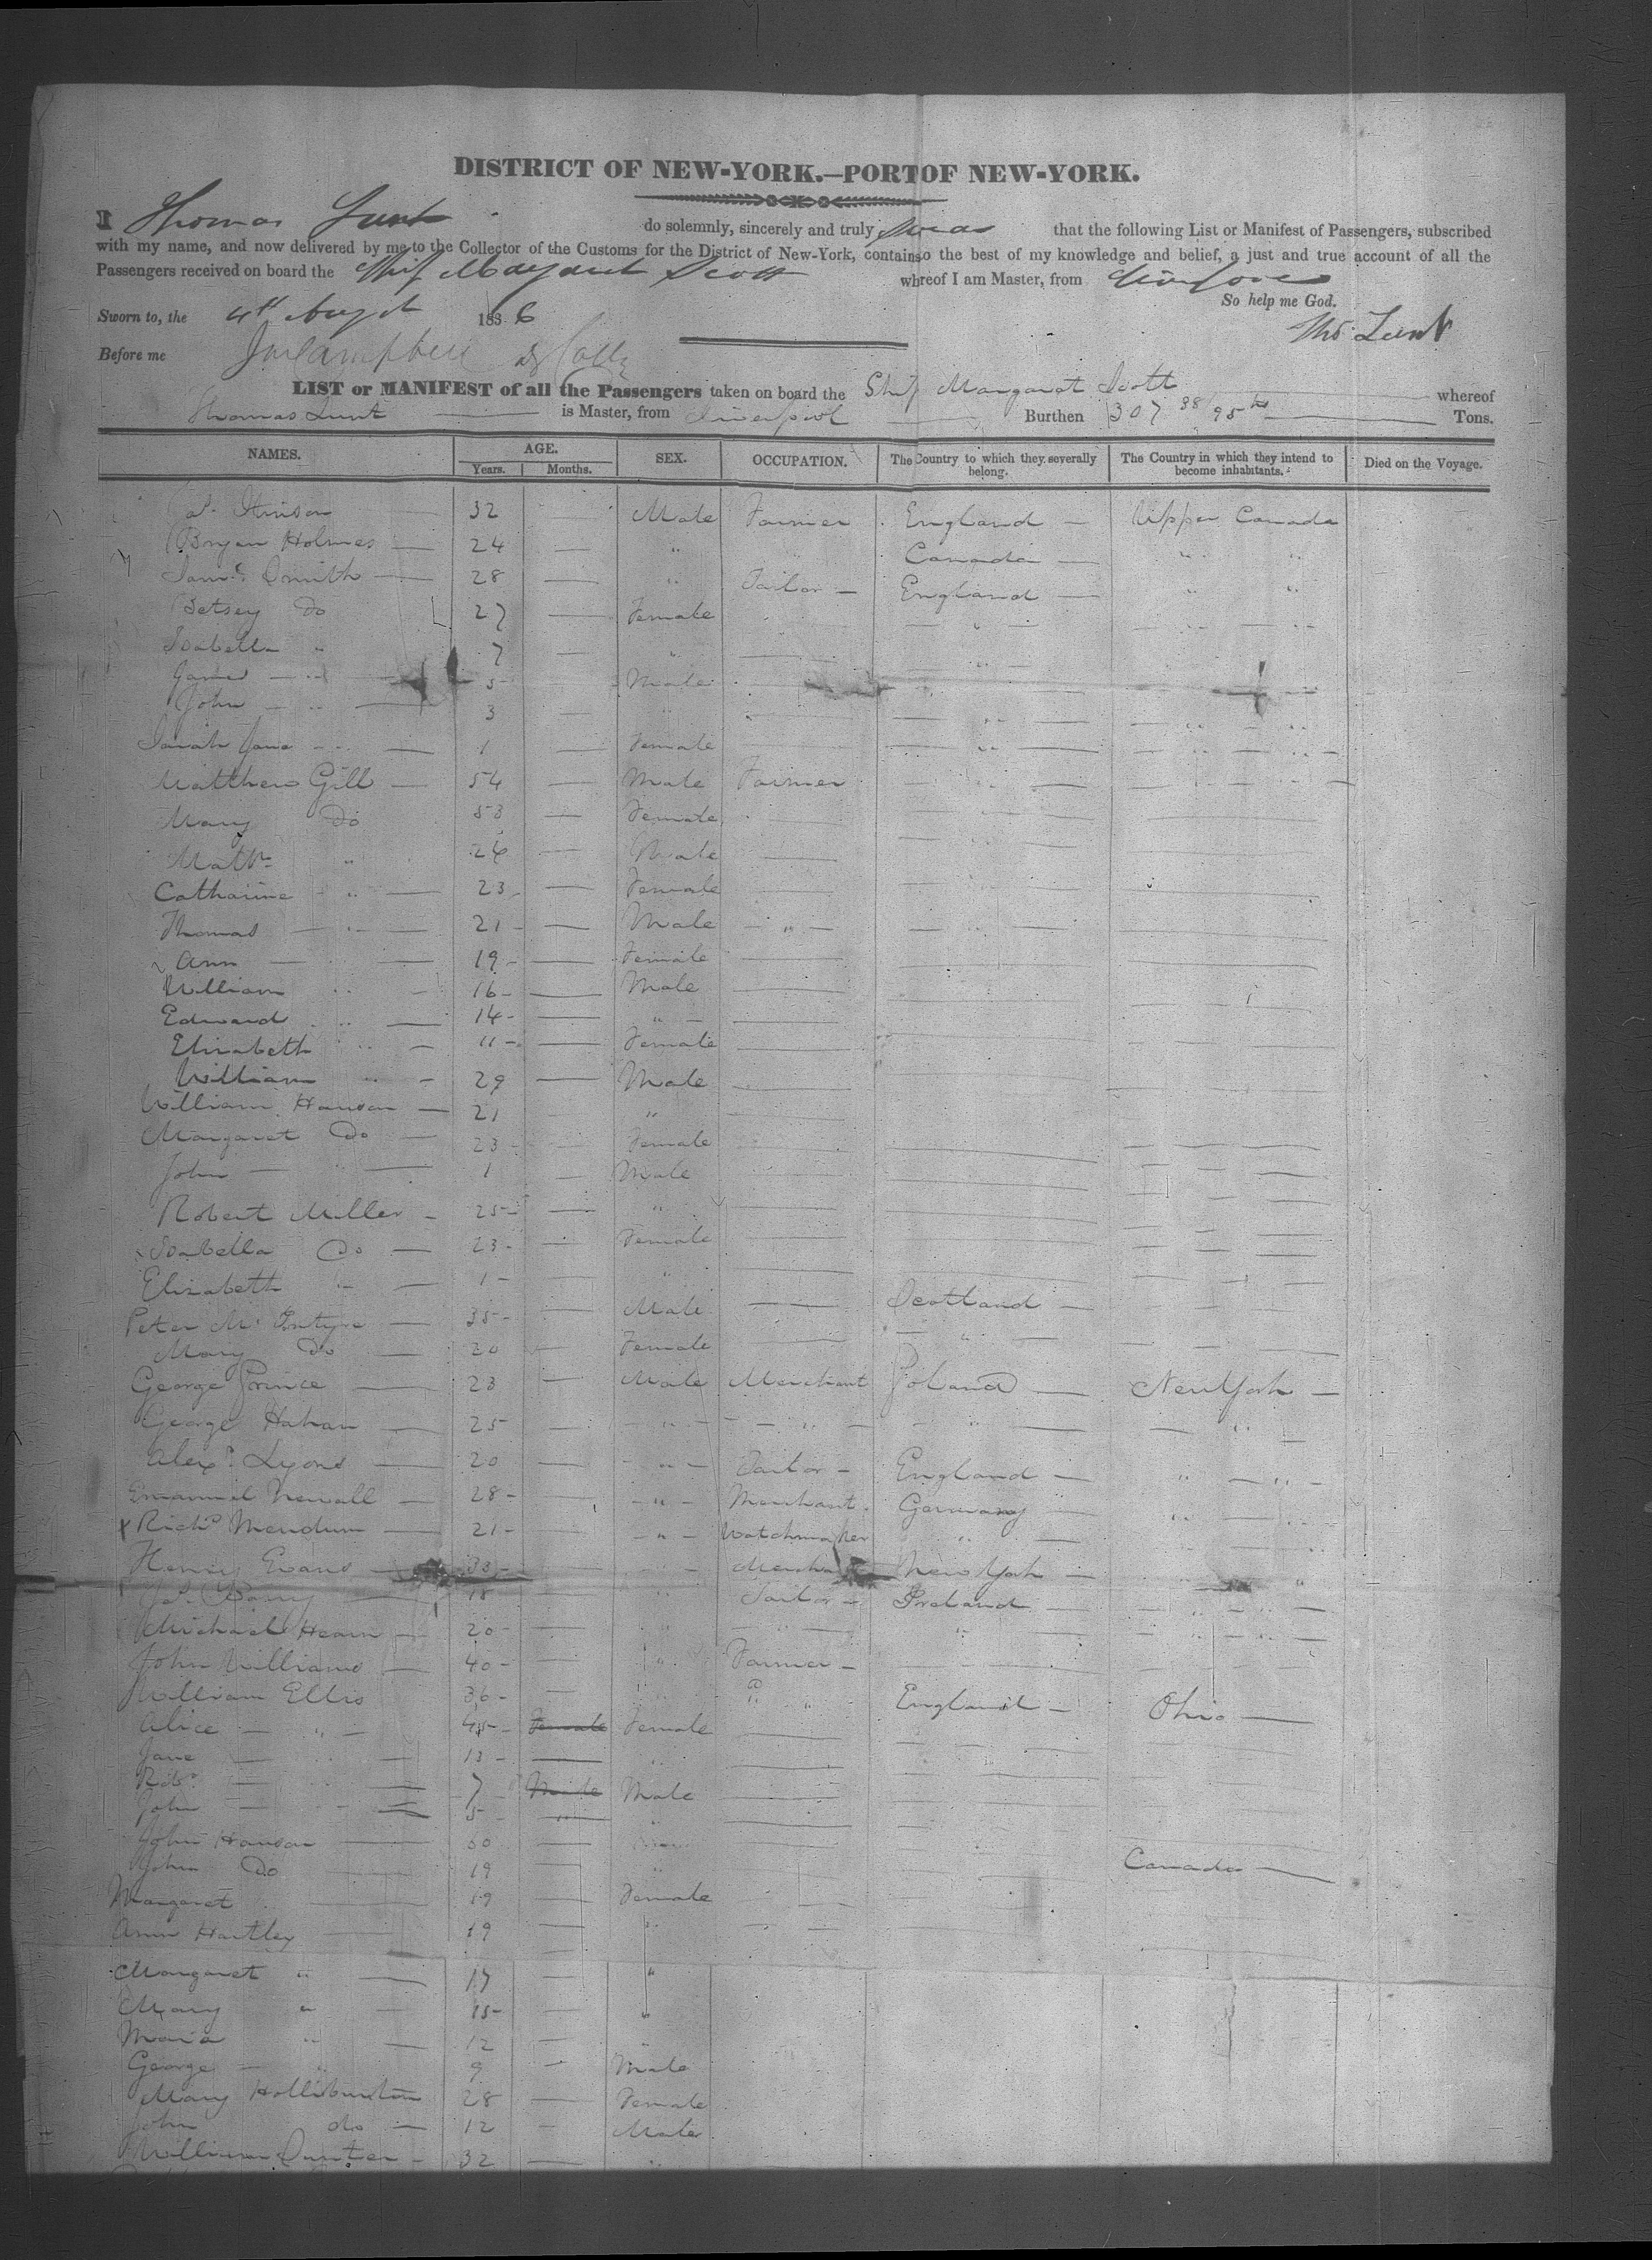 DISTRICT OF NEW-YORK.—PORT OF NEW-YORK.
I Thomas Lunt do solemnly, sincerely and truly swear that the following List or Manifest of Passengers, subscribed
with my name, and now delivered by me to the Collector of the Customs for the District of New-York, contains to the best of my knowledge and belief, a just and true account of all the
Passengers received on board the Ship Margaret Scott whereof I am Master, from Liverpool
So help me God.
Sworn to, the 4th August 1836
Thos Lunt
Before me
LIST or MANIFEST of all the Passengers taken on board the Ship Margaret Scott whereof
Thomas Lunt is Master, from Liverpool Burthen 307 38/95ths Tons.
NAMES. AGE. Years. Months. SEX. OCCUPATION. The Country to which they severally belong. The Country in which they intend to become inhabitants. Died on the Voyage.
32 — Male Farmer England — Upper Canada
Bryan Holmes — 24 — " Canada — " "
Saml Smith — 28 — " Tailor — England — " "
Betsey Do 27 — Female — " — " "
Isabella " 7 — " — — " —
James — " 5 Male — —
John — " — 3 — " — — " — — " —
Sarah Jane — " — 1 — Female — " — — " —
Matthew Gill — 54 — Male Farmer — " —
Mary Do 53 — Female
Matth " 24 — Male —
Catharine " — 23 — Female —
Thomas — " — 21 — Male — " — — " —
Ann — " — 19 — Female —
William " — 16 — Male —
Edward " — 14 — " — —
Elizabeth " — 11 — Female —
William " — 29 — Male —
William Hanson — 21 — " —
Margaret Do — 23 — Female —
John — " — 1 — Male —
Robert Miller — 25 — " —
Isabella Do — 23 — Female —
Elizabeth " — 1 — " —
Peter McIntyre — 35 — Male — Scotland —
Mary Do — 20 — Female — — " —
George Prince — 23 — Male Merchant Poland — New York —
George Hahan — 25 — " — — " — " — — " —
Alexr Lyons — 20 — " — Tailor — England — " — " —
Emanuel Newall — 28 — — " — Merchant Germany — " — " —
Richd Mendum — 21 — — " — Watchmaker " —
Henry Evans — 33 — " — Merchant New York — "
18 — " Tailor — Ireland — " — " —
Michael Hearn — 20 — " — " — " — " — " —
John Williams — 40 — " Farmer — —
William Ellis 36 — " " England — Ohio —
Alice — " — 45 — Female Female —
Jane — " — 13 — " —
Robt — 7 — Male Male —
John — 5 — " " —
John Hanson — 50 —
John Do — 19 — " Canada —
Margaret — 19 — Female
Ann Hartley — 19 — " — " —
Margaret " — 17 — "
Mary " — 15 — "
Maria " — 12 — "
George — " 9 — Male
Mary Holliburton 28 — Female
John do — 12 — Male
William — 32 — "